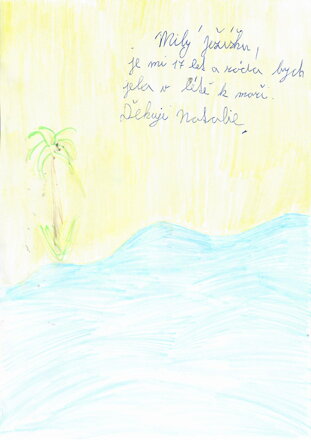 Milý Ježíšku,
je mi 17 let a ráda bych
jela v létě k moři.
Děkuji Natalie